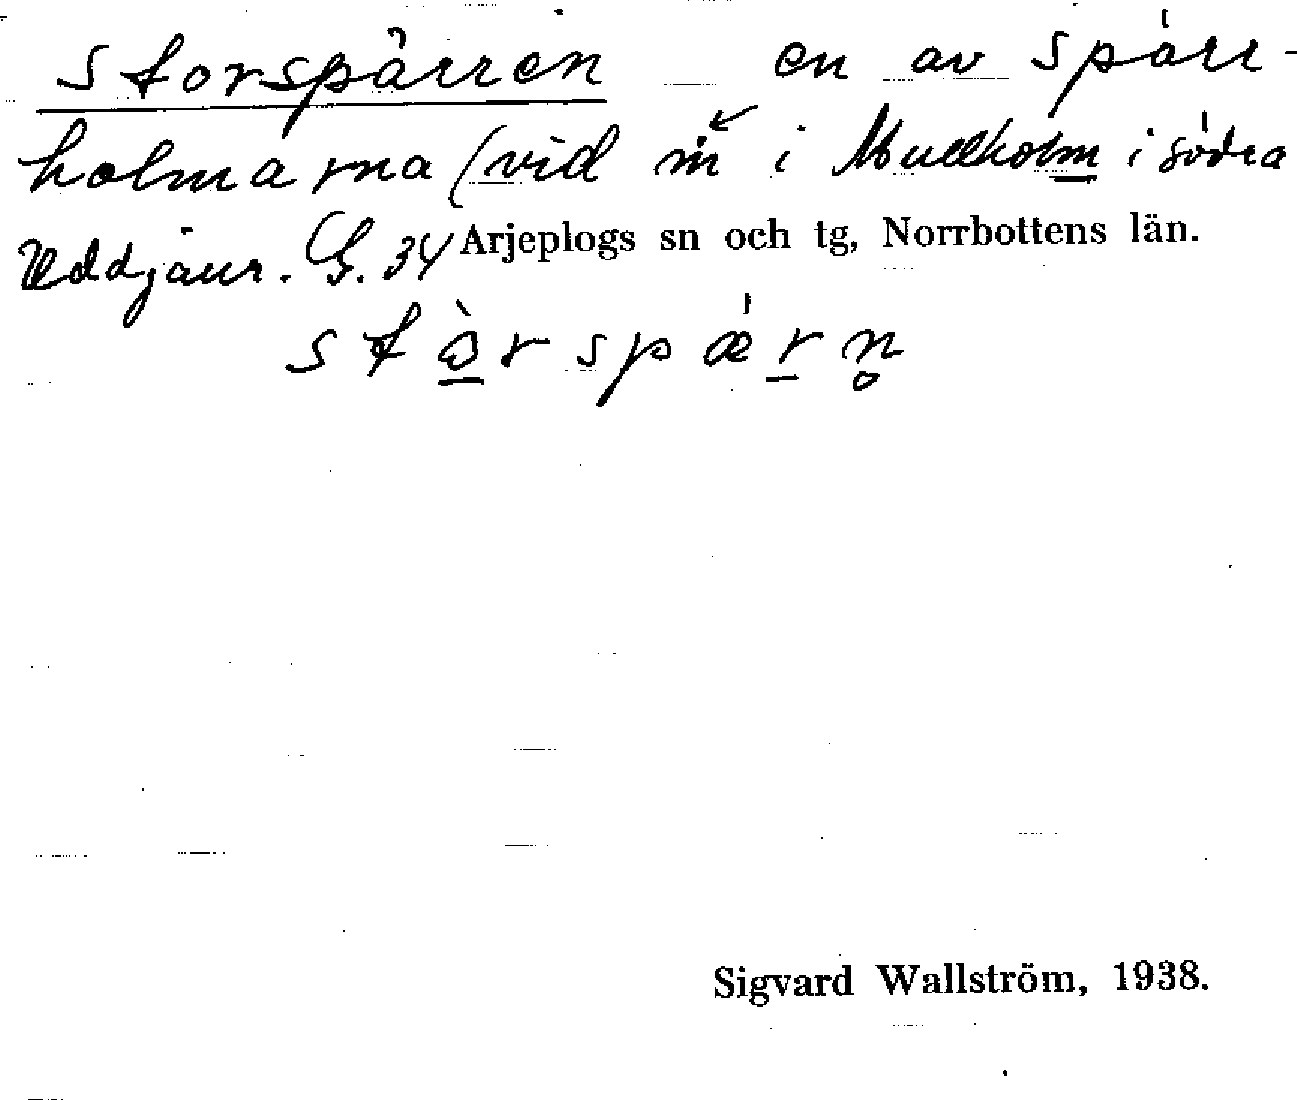 Storspärren en av Spärr-
holmarna (vid m i Mullholm i södra
Uddjaur. G. 34 Arjeplogs sn och tg, Norrbottens län.
stòrspærn̥
Sigvard Wallström, 1938.